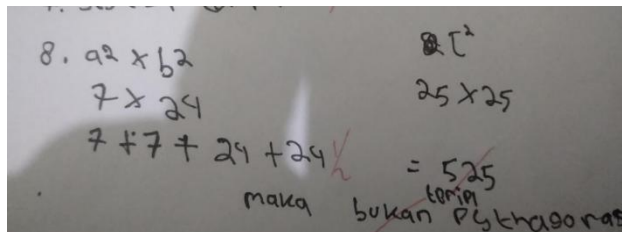 8. a² x b²
c²
7 x 24
25 x 25
7 + 7 + 24 + 24
= 525
maka bukan Pythagoras